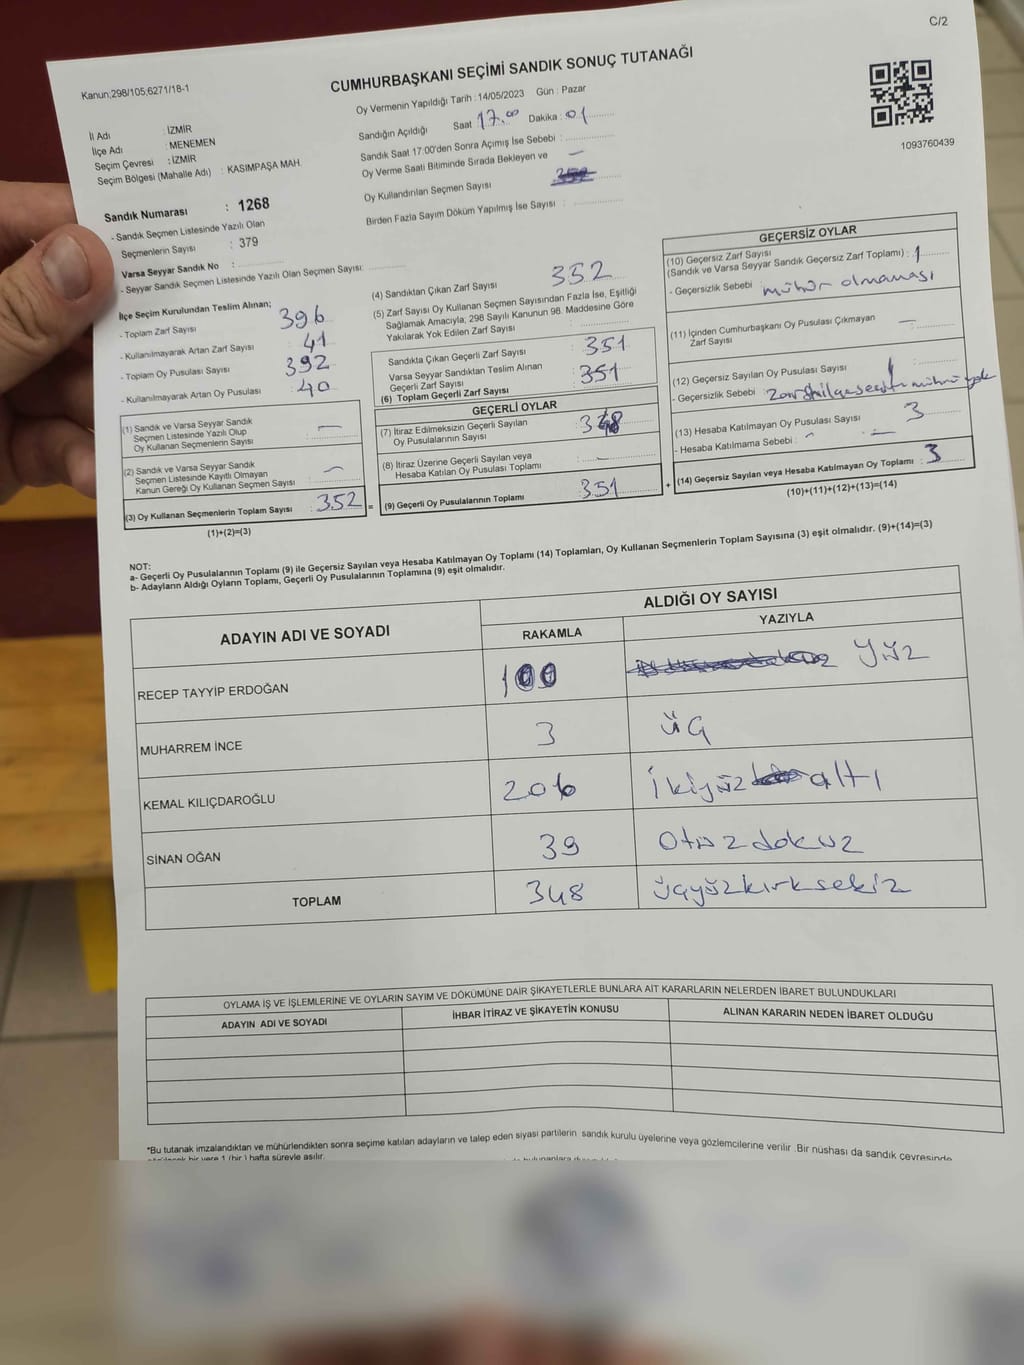 C/2
Kanun;298/105;6271/18-1
CUMHURBAŞKANI SEÇİMİ SANDIK SONUÇ TUTANAĞI
Oy Vermenin Yapıldığı Tarih : 14/05/2023 Gün : Pazar
Sandığın Açıldığı Saat 17.00 Dakika : 01
Sandık Saat 17:00'den Sonra Açımış İse Sebebi :
Oy Verme Saati Bitiminde Sırada Bekleyen ve
Oy Kullandırılan Seçmen Sayısı
Birden Fazla Sayım Döküm Yapılmış İse Sayısı :
1093760439
İl Adı : İZMİR
İlçe Adı : MENEMEN
Seçim Çevresi : İZMİR
Seçim Bölgesi (Mahalle Adı) : KASIMPAŞA MAH.
Sandık Numarası : 1268
- Sandık Seçmen Listesinde Yazılı Olan
Seçmenlerin Sayısı : 379
Varsa Seyyar Sandık No :
- Seyyar Sandık Seçmen Listesinde Yazılı Olan Seçmen Sayısı:
İlçe Seçim Kurulundan Teslim Alınan;
- Toplam Zarf Sayısı 396
- Kullanılmayarak Artan Zarf Sayısı 41
- Toplam Oy Pusulası Sayısı 392
- Kullanılmayarak Artan Oy Pusulası : 40
(1) Sandık ve Varsa Seyyar Sandık
Seçmen Listesinde Yazılı Olup
Oy Kullanan Seçmenlerin Sayısı : —
(2) Sandık ve Varsa Seyyar Sandık
Seçmen Listesinde Kayıtlı Olmayan
Kanun Gereği Oy Kullanan Seçmen Sayısı : —
(3) Oy Kullanan Seçmenlerin Toplam Sayısı : 352 =
(1)+(2)=(3)
(4) Sandıktan Çıkan Zarf Sayısı 352
(5) Zarf Sayısı Oy Kullanan Seçmen Sayısından Fazla İse, Eşitliği
Sağlamak Amacıyla; 298 Sayılı Kanunun 98. Maddesine Göre
Yakılarak Yok Edilen Zarf Sayısı :
Sandıkta Çıkan Geçerli Zarf Sayısı : 351
Varsa Seyyar Sandıktan Teslim Alınan
Geçerli Zarf Sayısı : 351
(6) Toplam Geçerli Zarf Sayısı
GEÇERLİ OYLAR
(7) İtiraz Edilmeksizin Geçerli Sayılan
Oy Pusulalarının Sayısı : 348
(8) İtiraz Üzerine Geçerli Sayılan veya
Hesaba Katılan Oy Pusulası Toplamı : —
(9) Geçerli Oy Pusulalarının Toplamı : 351 +
GEÇERSİZ OYLAR
(10) Geçersiz Zarf Sayısı
(Sandık ve Varsa Seyyar Sandık Geçersiz Zarf Toplamı) : 1
- Geçersizlik Sebebi mühür olmaması
(11) İçinden Cumhurbaşkanı Oy Pusulası Çıkmayan
Zarf Sayısı : —
(12) Geçersiz Sayılan Oy Pusulası Sayısı
- Geçersizlik Sebebi
(13) Hesaba Katılmayan Oy Pusulası Sayısı : 3
- Hesaba Katılmama Sebebi : —
(14) Geçersiz Sayılan veya Hesaba Katılmayan Oy Toplamı : 3
(10)+(11)+(12)+(13)=(14)
NOT:
a- Geçerli Oy Pusulalarının Toplamı (9) ile Geçersiz Sayılan veya Hesaba Katılmayan Oy Toplamı (14) Toplamları, Oy Kullanan Seçmenlerin Toplam Sayısına (3) eşit olmalıdır. (9)+(14)=(3)
b- Adayların Aldığı Oyların Toplamı, Geçerli Oy Pusulalarının Toplamına (9) eşit olmalıdır.
ADAYIN ADI VE SOYADI
ALDIĞI OY SAYISI
RAKAMLA YAZIYLA
RECEP TAYYİP ERDOĞAN 100 yüz
MUHARREM İNCE 3 üç
KEMAL KILIÇDAROĞLU 206 ikiyüz altı
SİNAN OĞAN 39 otuzdokuz
TOPLAM 348 üçyüzkırksekiz
OYLAMA İŞ VE İŞLEMLERİNE VE OYLARIN SAYIM VE DÖKÜMÜNE DAİR ŞİKAYETLERLE BUNLARA AİT KARARLARIN NELERDEN İBARET BULUNDUKLARI
ADAYIN ADI VE SOYADI İHBAR İTİRAZ VE ŞİKAYETİN KONUSU ALINAN KARARIN NEDEN İBARET OLDUĞU
*Bu tutanak imzalandıktan ve mühürlendikten sonra seçime katılan adayların ve talep eden siyasi partilerin sandık kurulu üyelerine veya gözlemcilerine verilir .Bir nüshası da sandık çevresinde
bir yere 1 (bir ) hafta süreyle asılır.